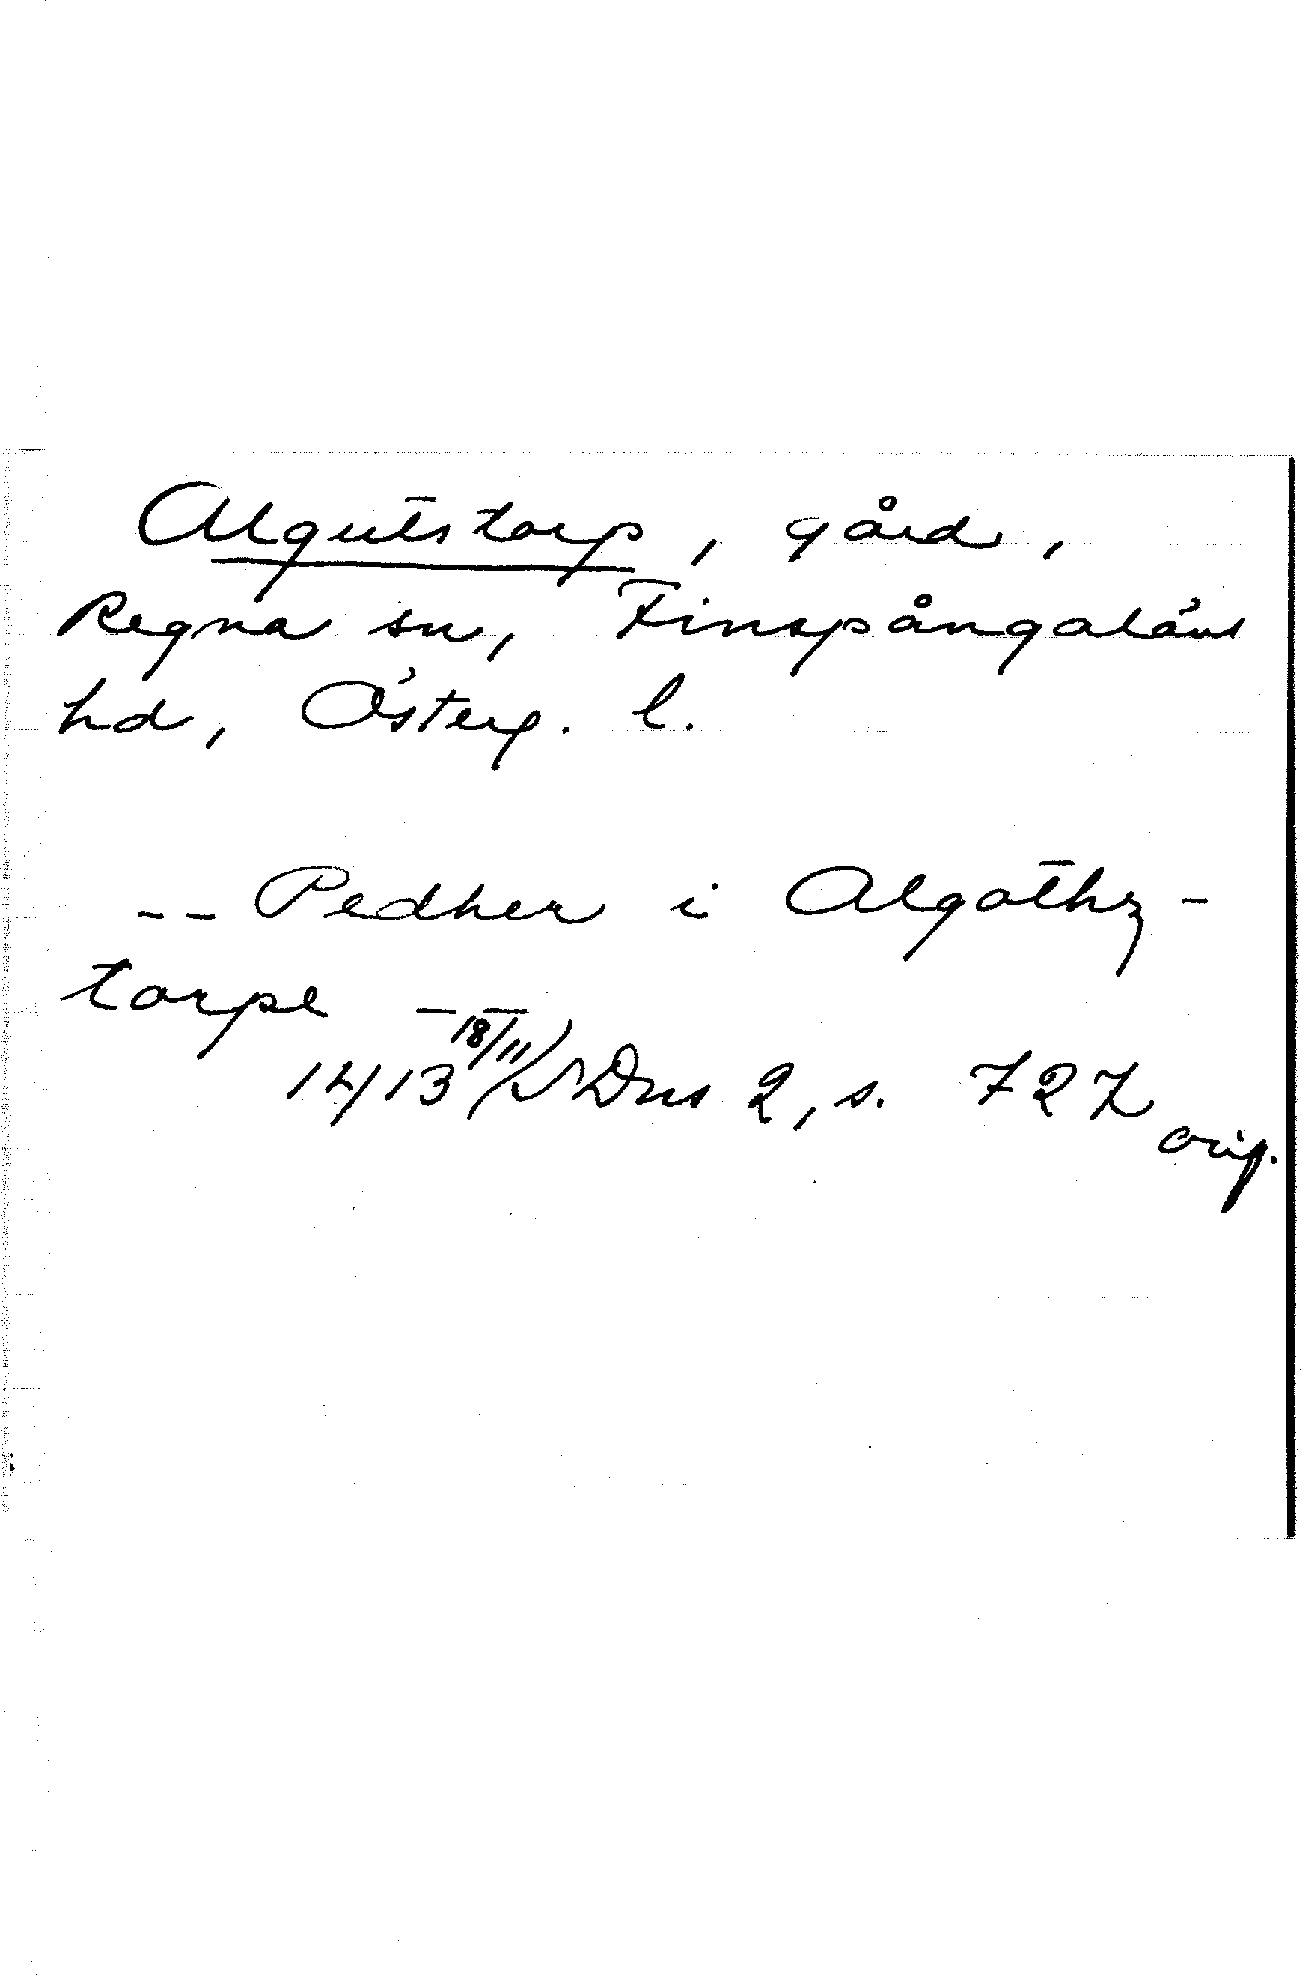 Algutstorp, gård,
Regna sn, Finspångaläns
hd, Österg. l.
-- Pedher i Algothz-
torpe --
1413 18/11 SDns 2, s. 727
orig.